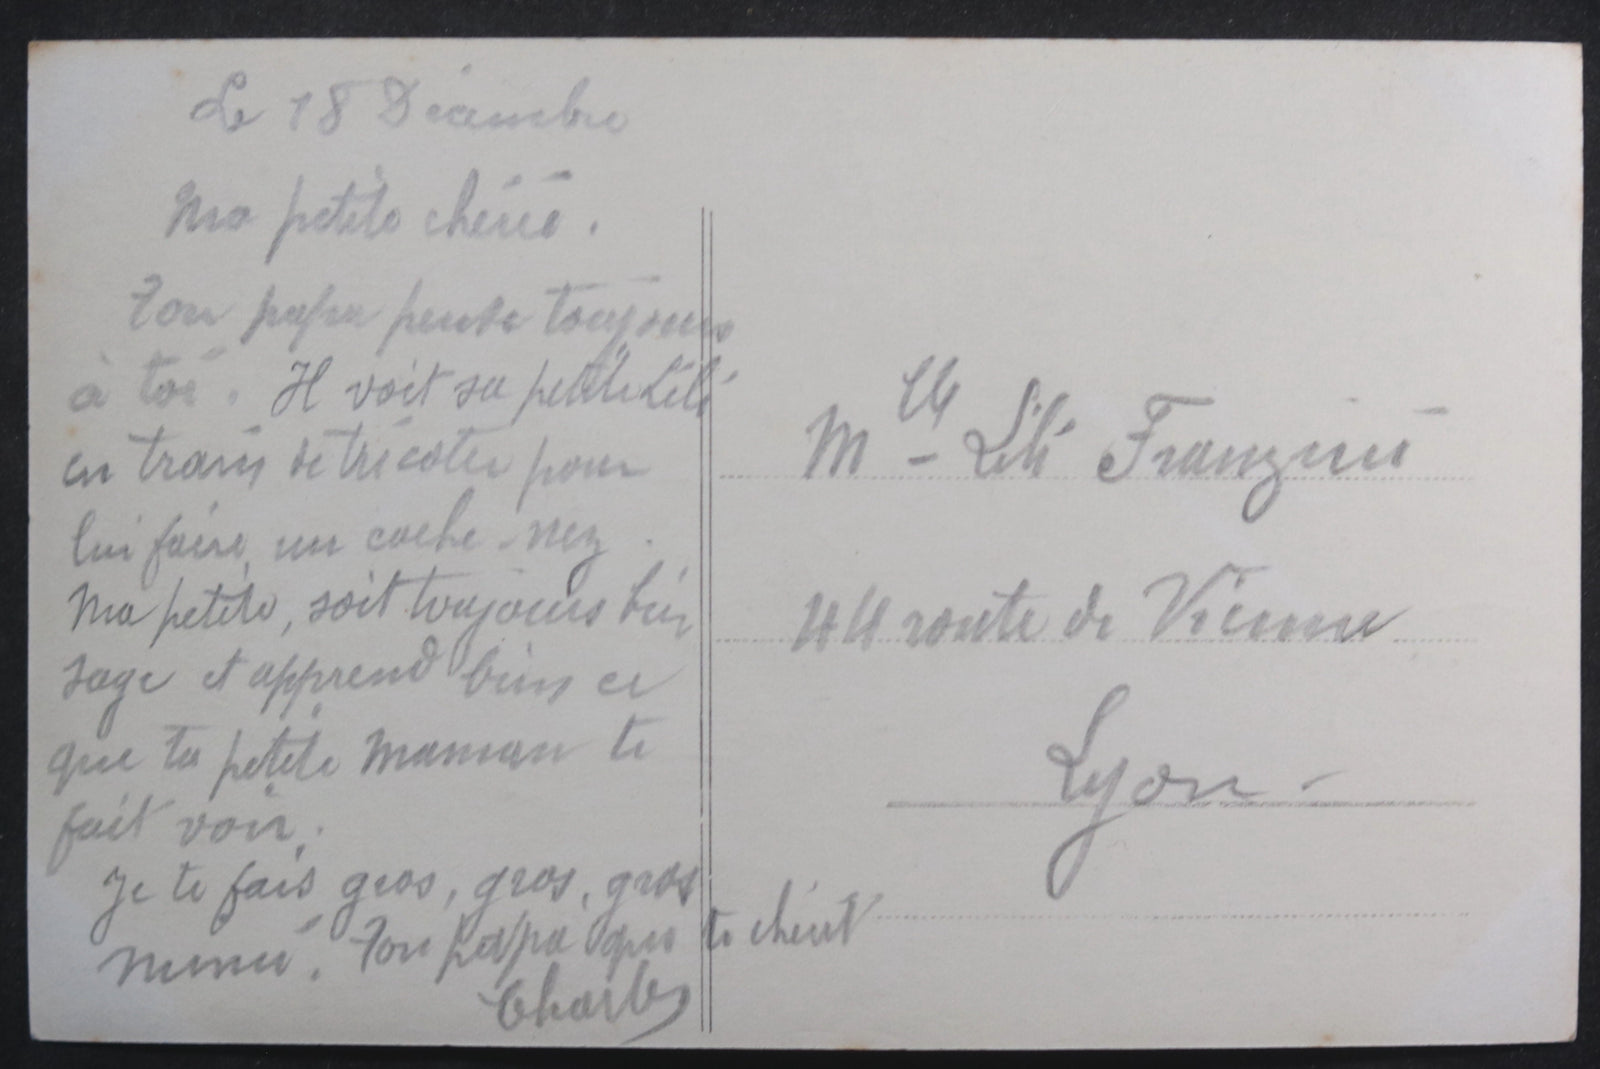 Le 18 Décembre
Ma petite chérie.
Ton papa pense toujours
à toi. Il voit sa petite Lili
en train de tricoter pour
lui faire un cache-nez.
Ma petite, soit toujours bien
sage et apprend bien ce
que ta petite Maman te
fait voir.
Je te fais gros, gros, gros
mimi. Ton papa qui te chérit
Charles
Mlle - Lili Franzini
44 route de Vienne
Lyon -